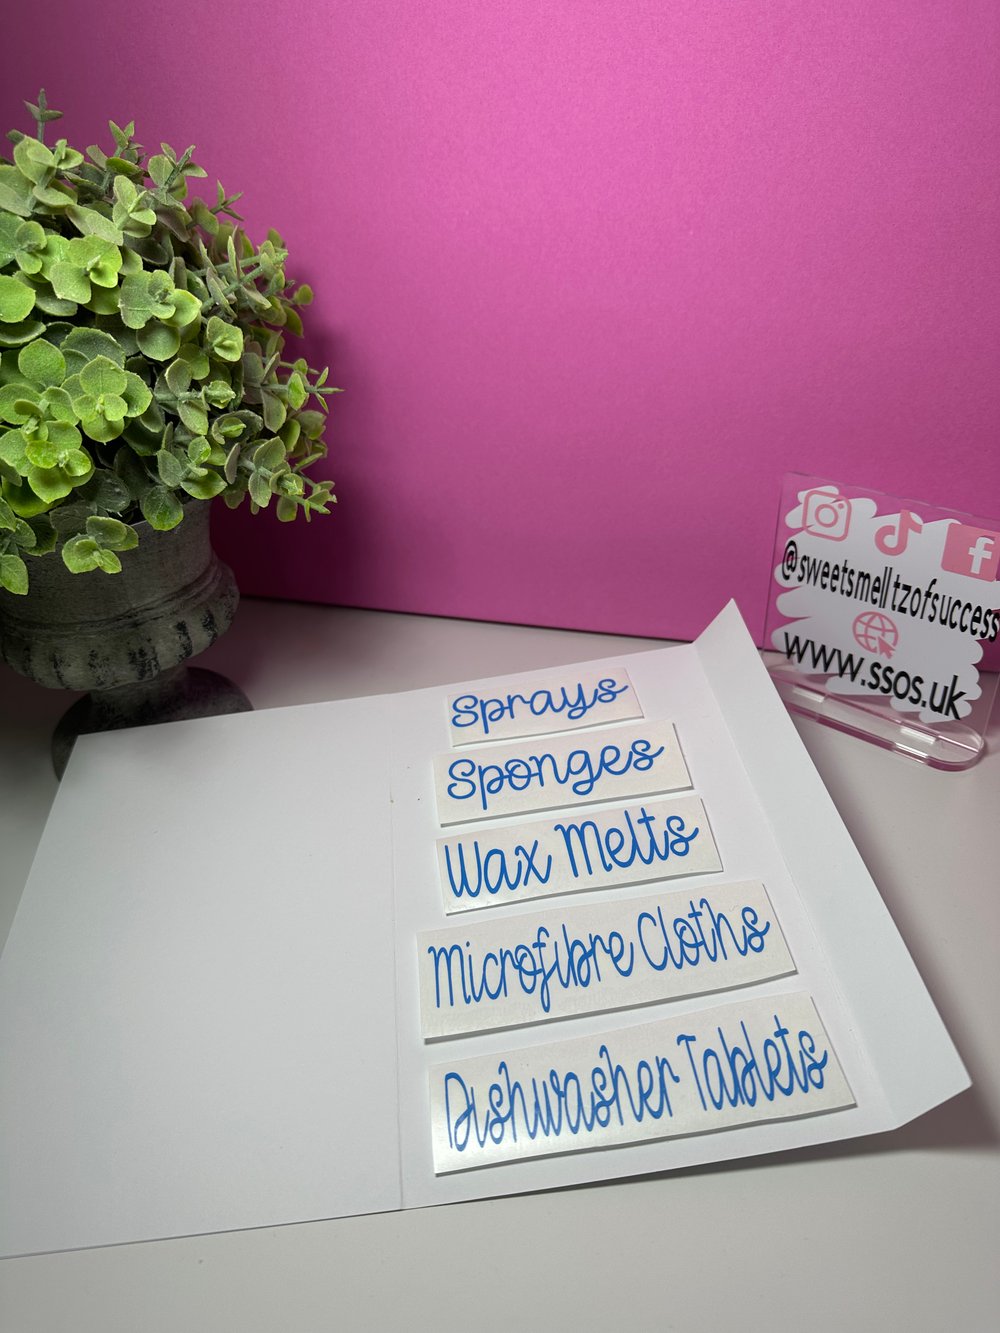 Sprays
Sponges
Wax Melts
Microfibre Cloths
Dishwasher Tablets
@sweetsmelltzofsuccess
www.ssos.uk